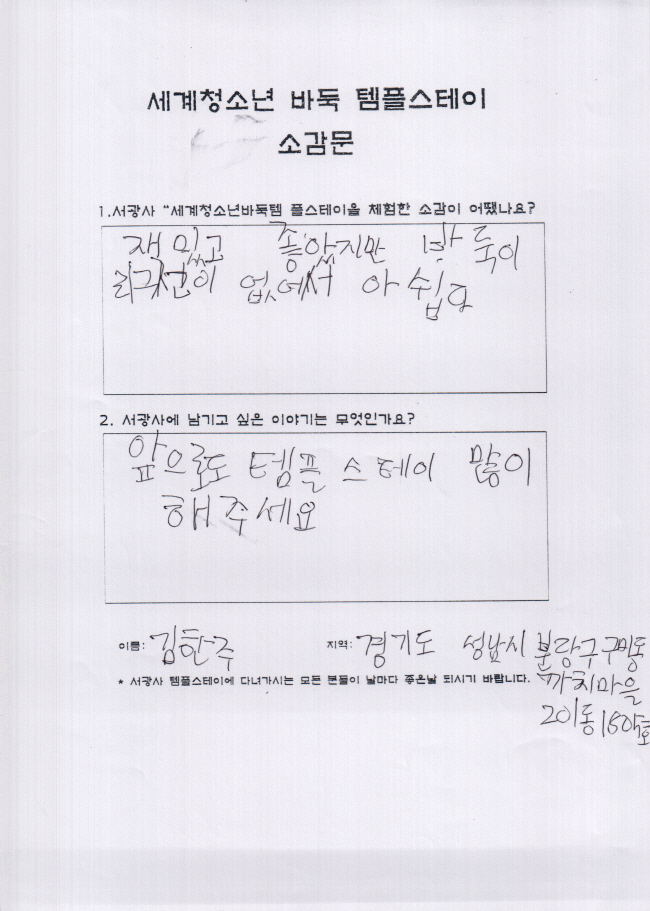 세계청소년 바둑 템플스테이
소감문
1.서광사 "세계청소년바둑템 플스테이을 체험한 소감이 어땠나요?
재밌고 좋았지만 바둑이
없에서 아쉽다
2. 서광사에 남기고 싶은 이야기는 무엇인가요?
앞으로도 템플스테이 많이
해주세요
이름: 김한주 지역: 경기도 성남시 분당구 구미동
까치마을
201동
* 서광사 템플스테이에 다녀가시는 모든 분들이 날마다 좋은날 되시기 바랍니다.